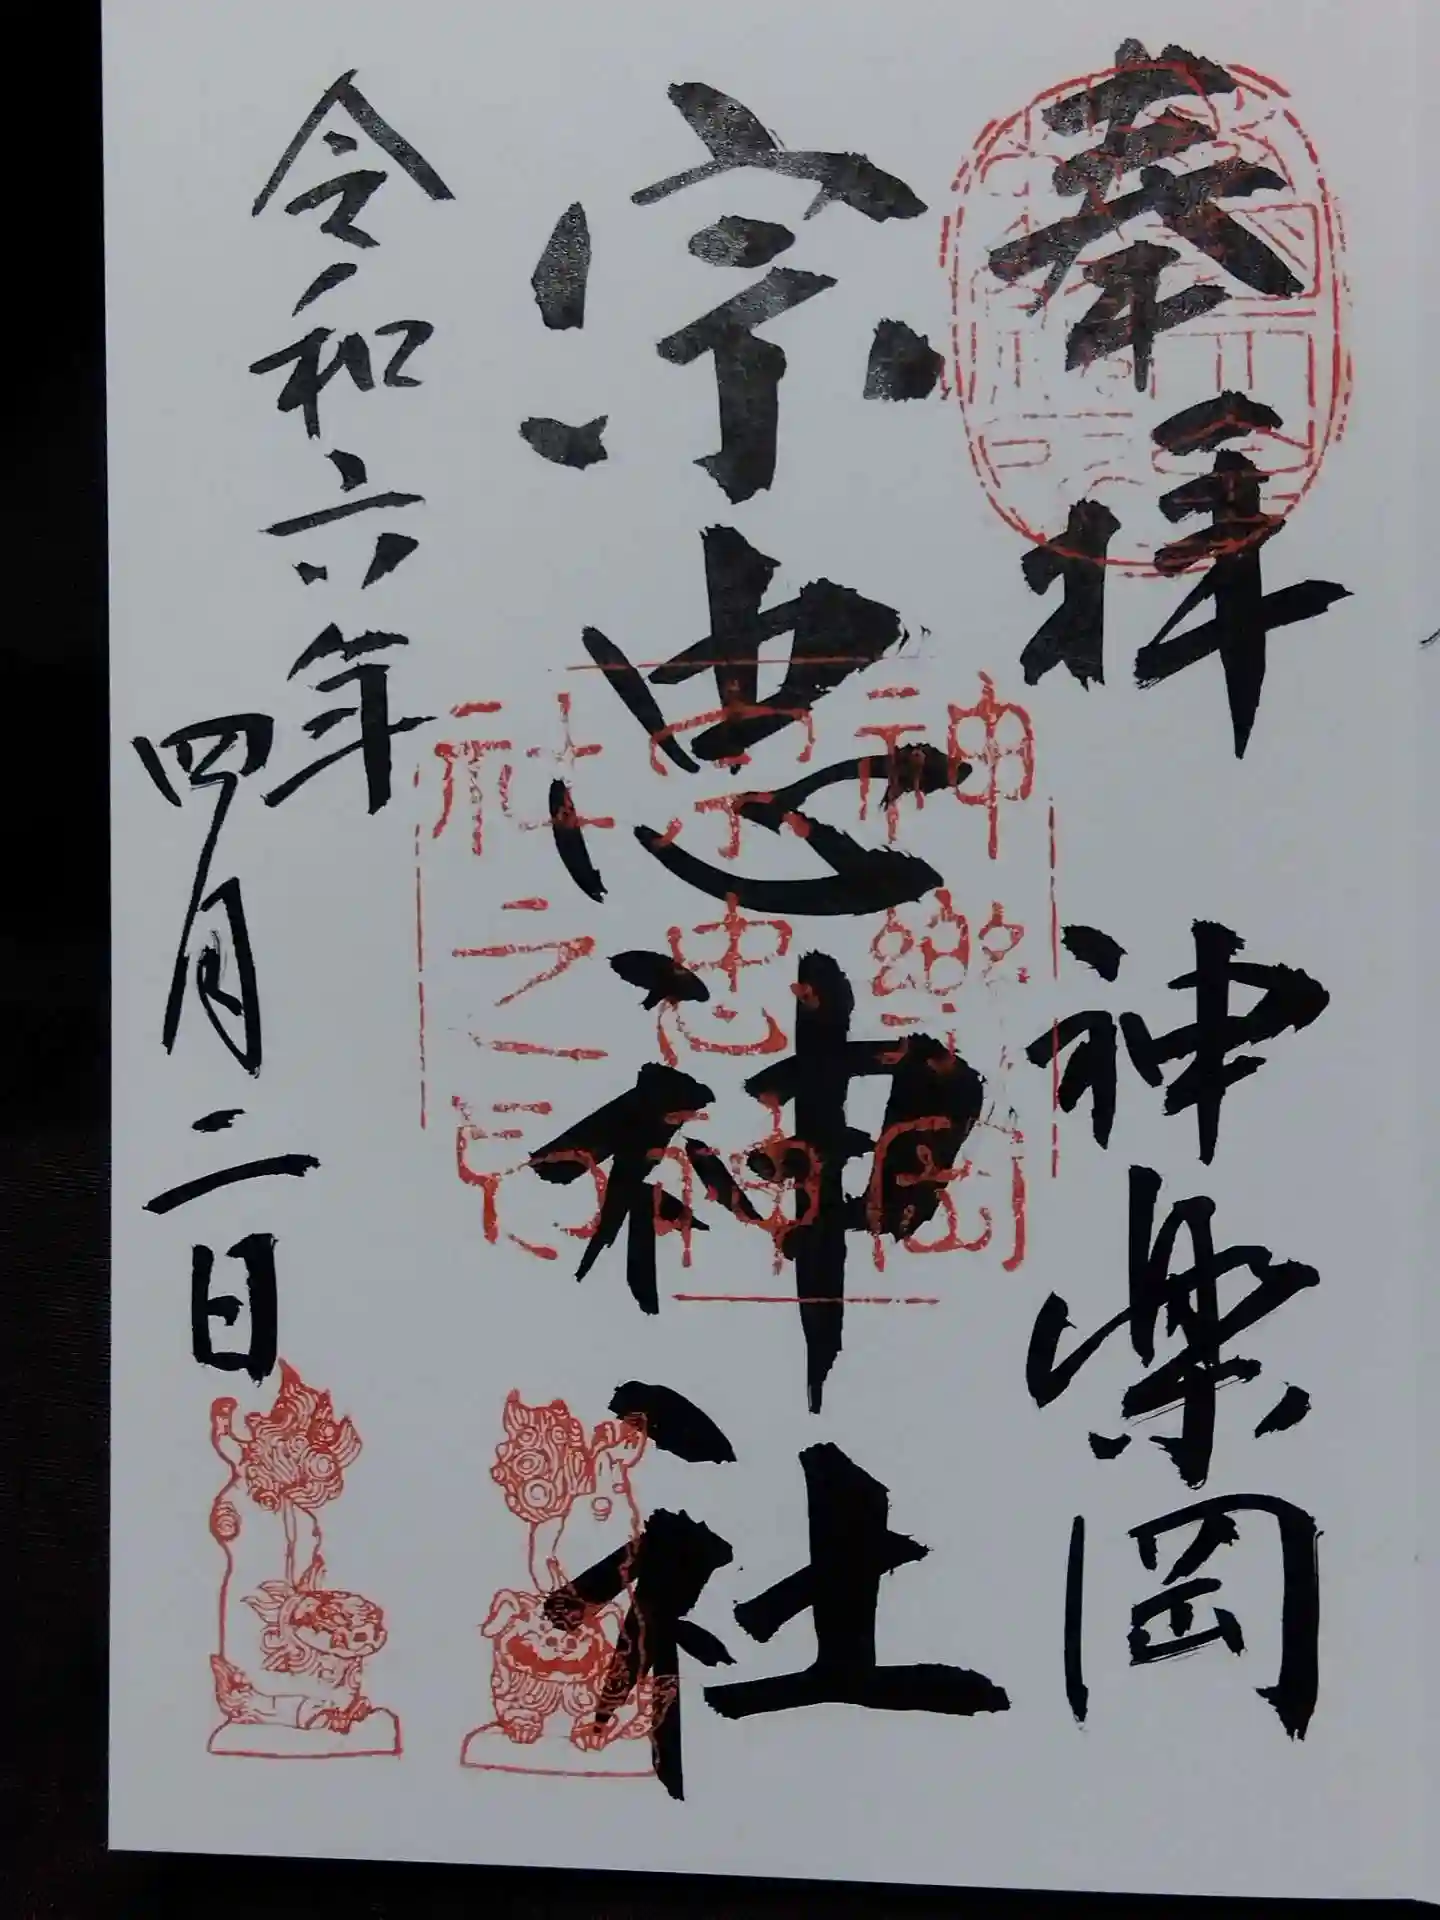 奉拝 神楽岡
宗忠神社
令和六年
四月二日
神樂岡
宗忠神
社之印